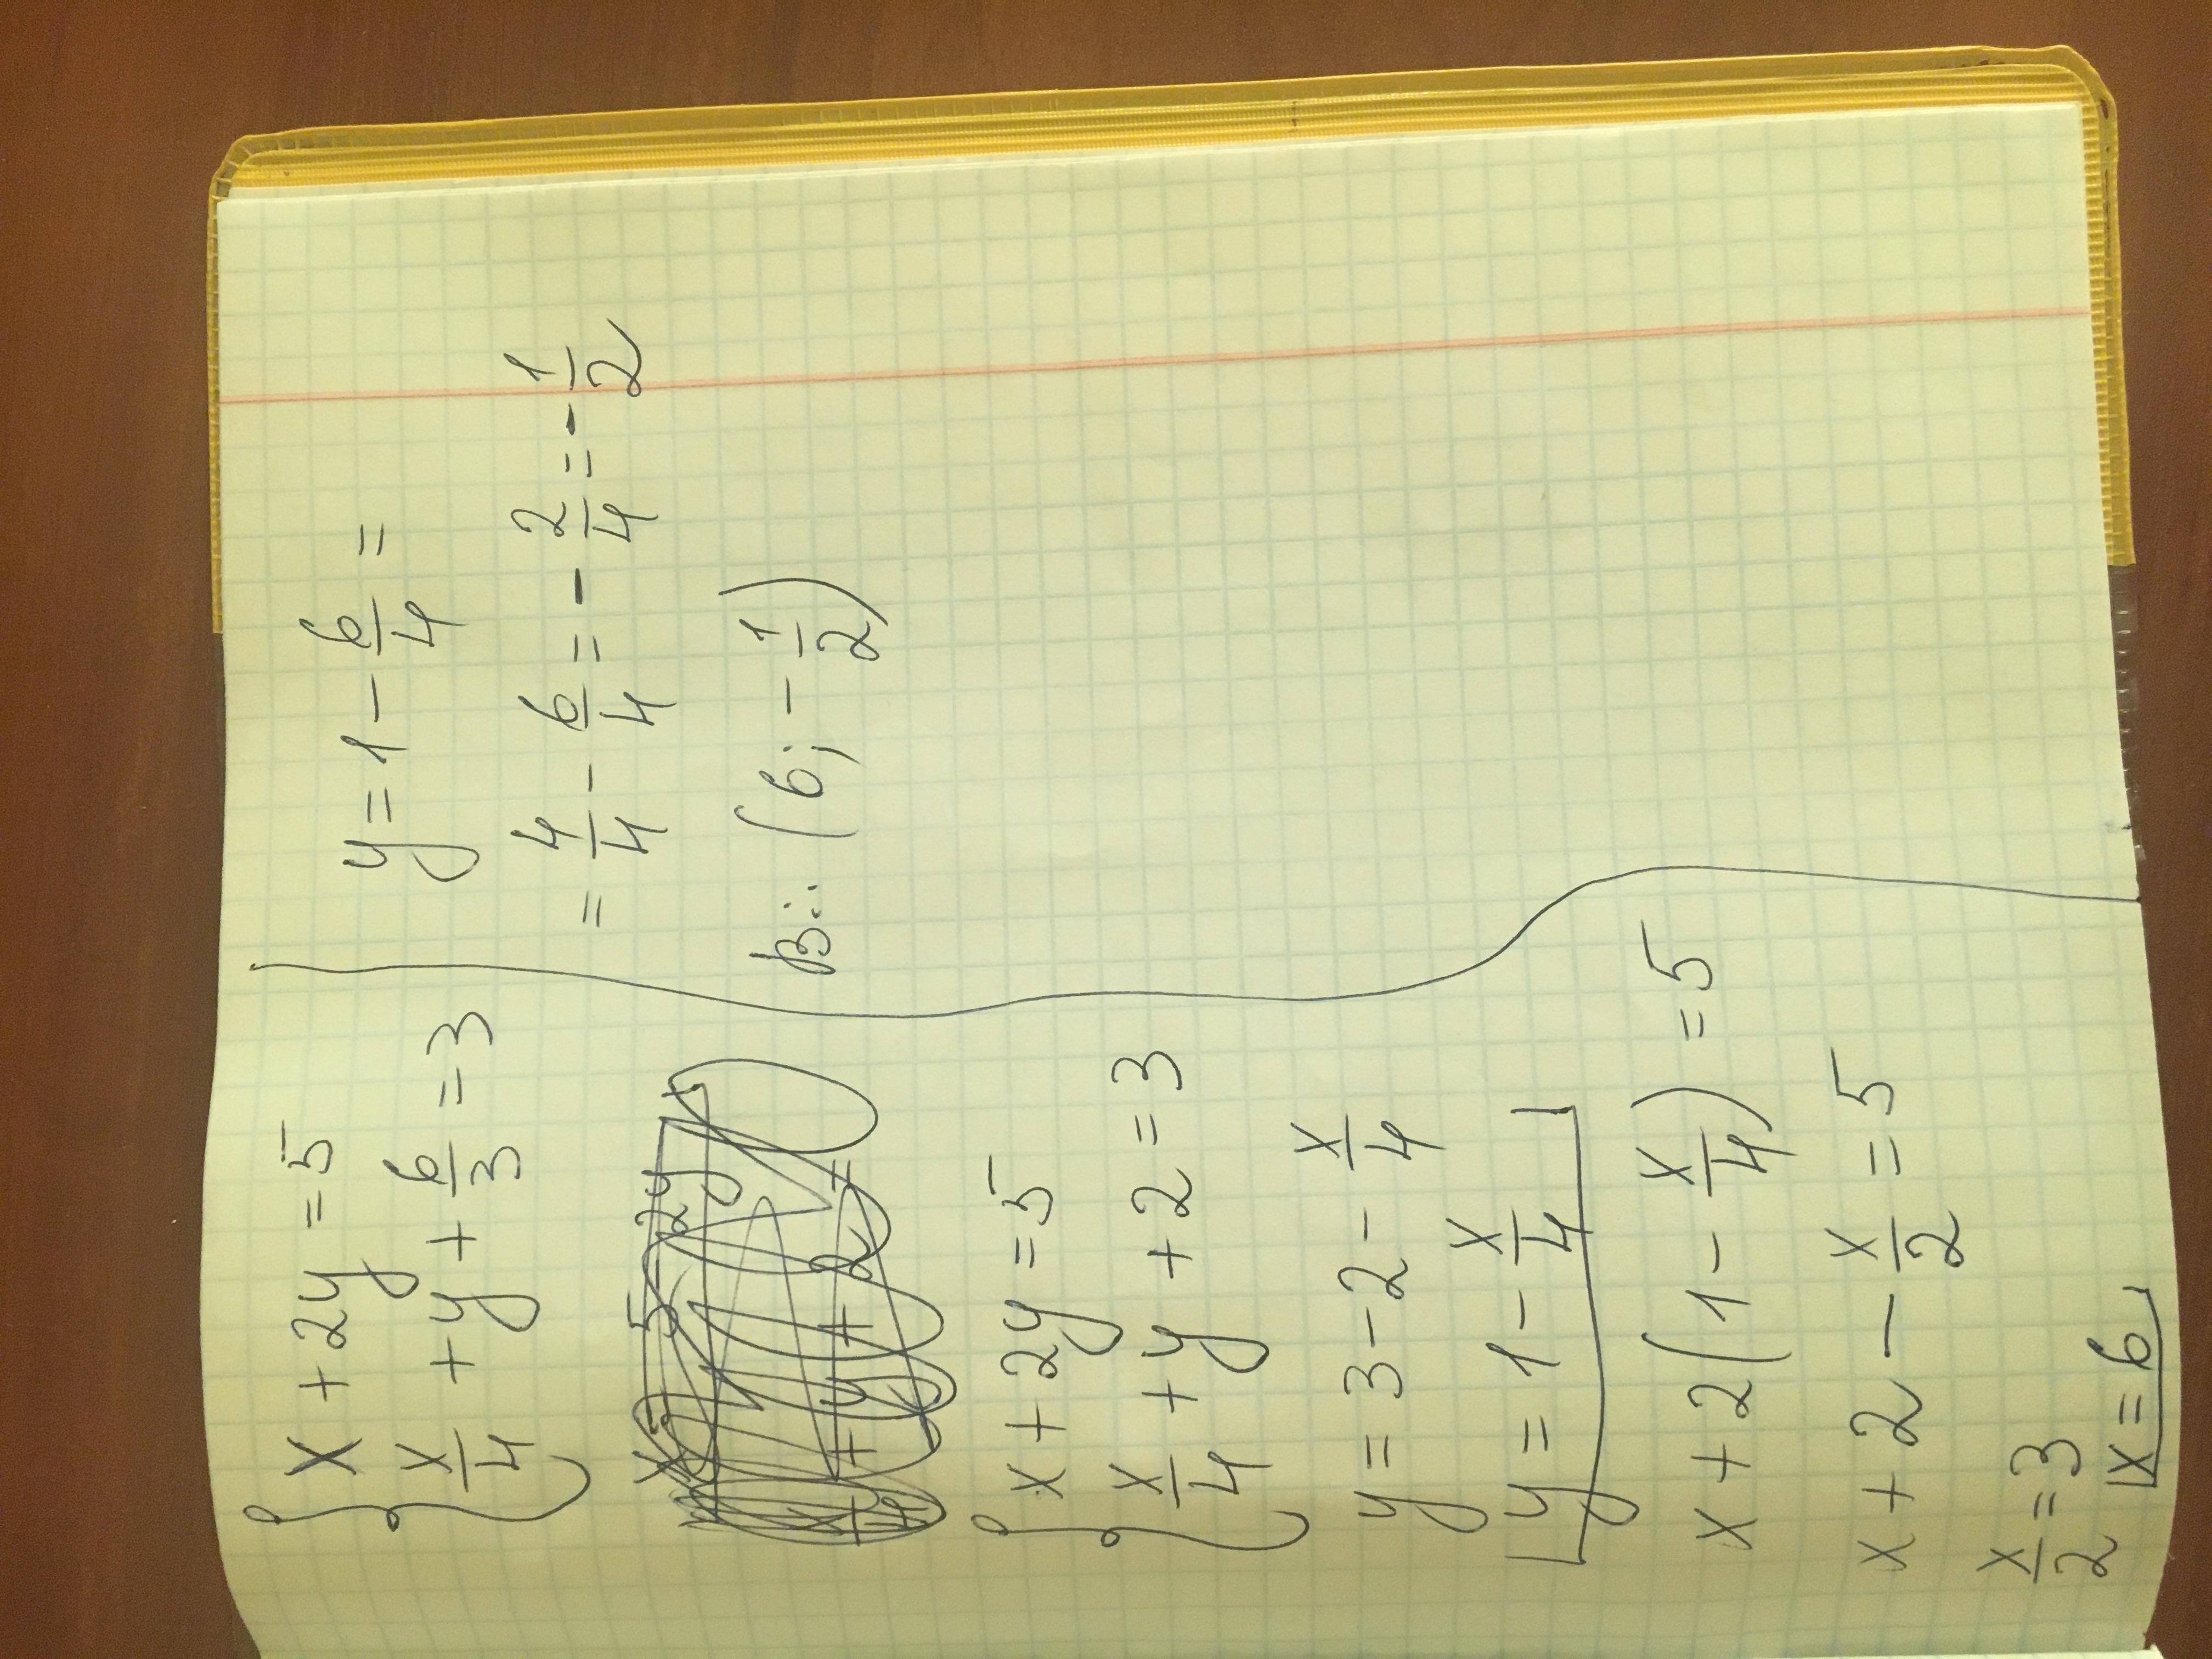 { x + 2y = 5
x/4 + y + 6/3 = 3
x = 5 - 2y
x/4 + y + 2 =
{ x + 2y = 5
x/4 + y + 2 = 3
y = 3 - 2 - x/4
y = 1 - x/4
x + 2(1 - x/4) = 5
x + 2 - x/2 = 5
x/2 = 3
x = 6
y = 1 - 6/4 =
= 4/4 - 6/4 = - 2/4 = - 1/2
Ві.: (6; - 1/2)